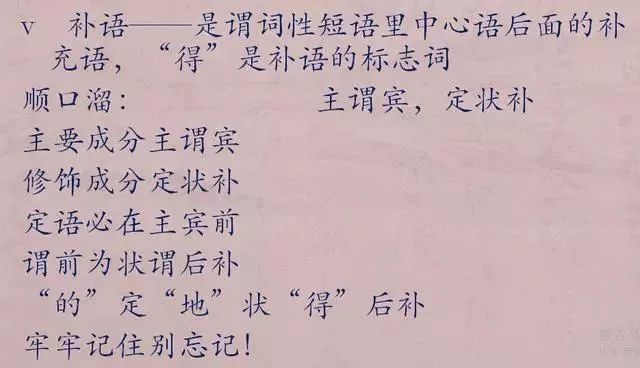 v 补语——是谓词性短语里中心语后面的补
充语，“得”是补语的标志词
顺口溜： 主谓宾，定状补
主要成分主谓宾
修饰成分定状补
定语必在主宾前
谓前为状谓后补
“的”定“地”状“得”后补
牢牢记住别忘记！